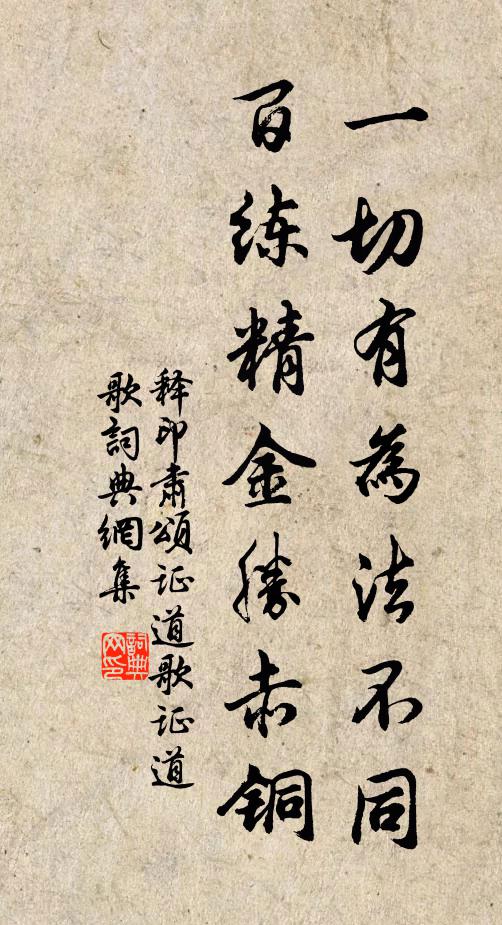 一切有為法不同
百练精金勝赤铜
释印肃頌证道歌证道
歌詞典網集
詞典网印